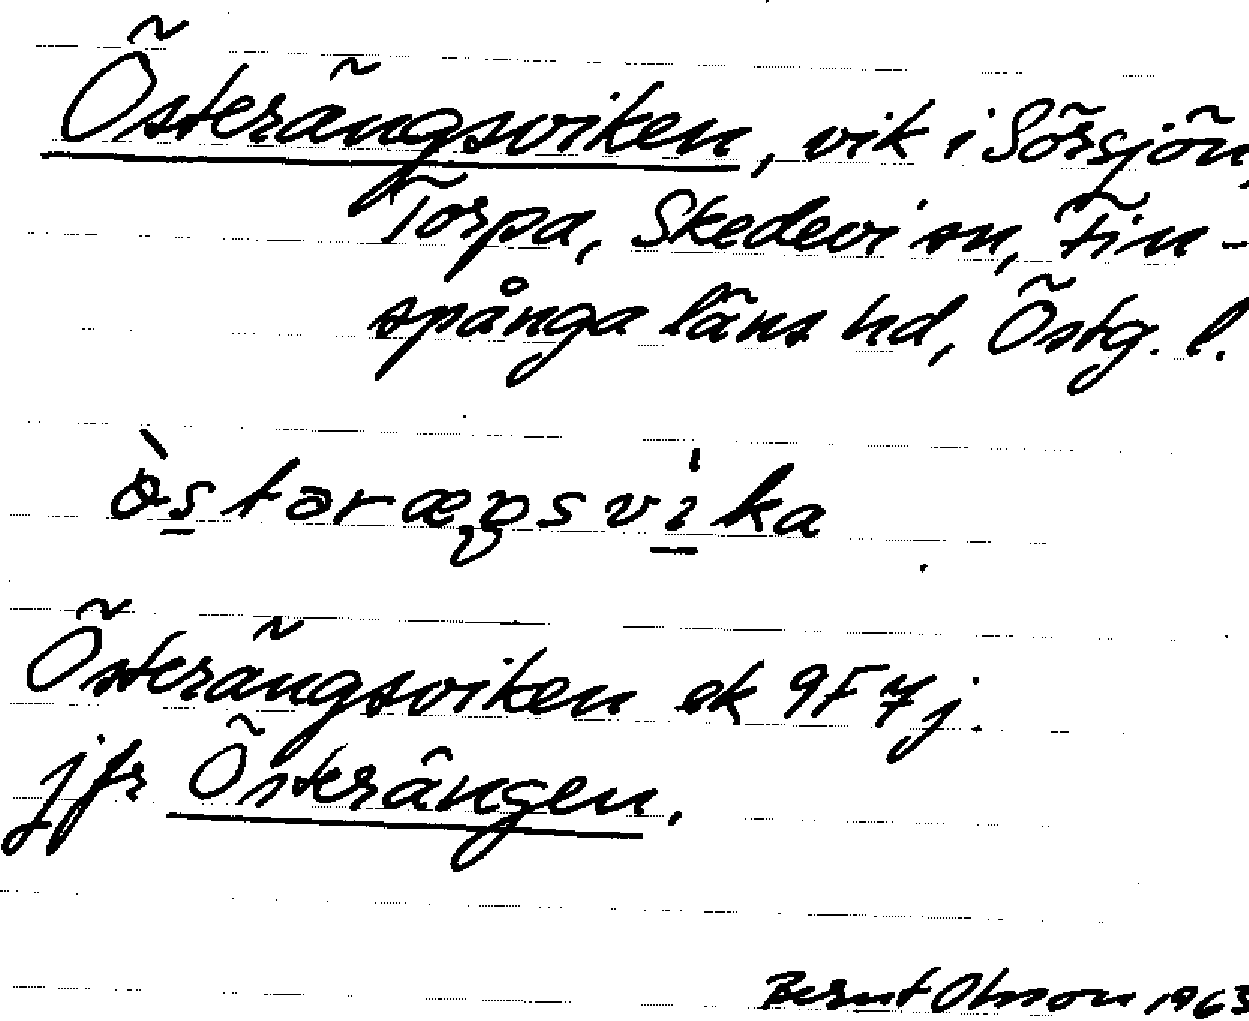 Österängsviken, vik i Sörsjön,
Torpa, Skedevi sn, Fin-
spånga läns hd, Östg. l.
ò̀s̲təræŋsvi̲ka
Österängsviken ek 9F7j.
jfr Österängen.
Bernt Olsson 1963